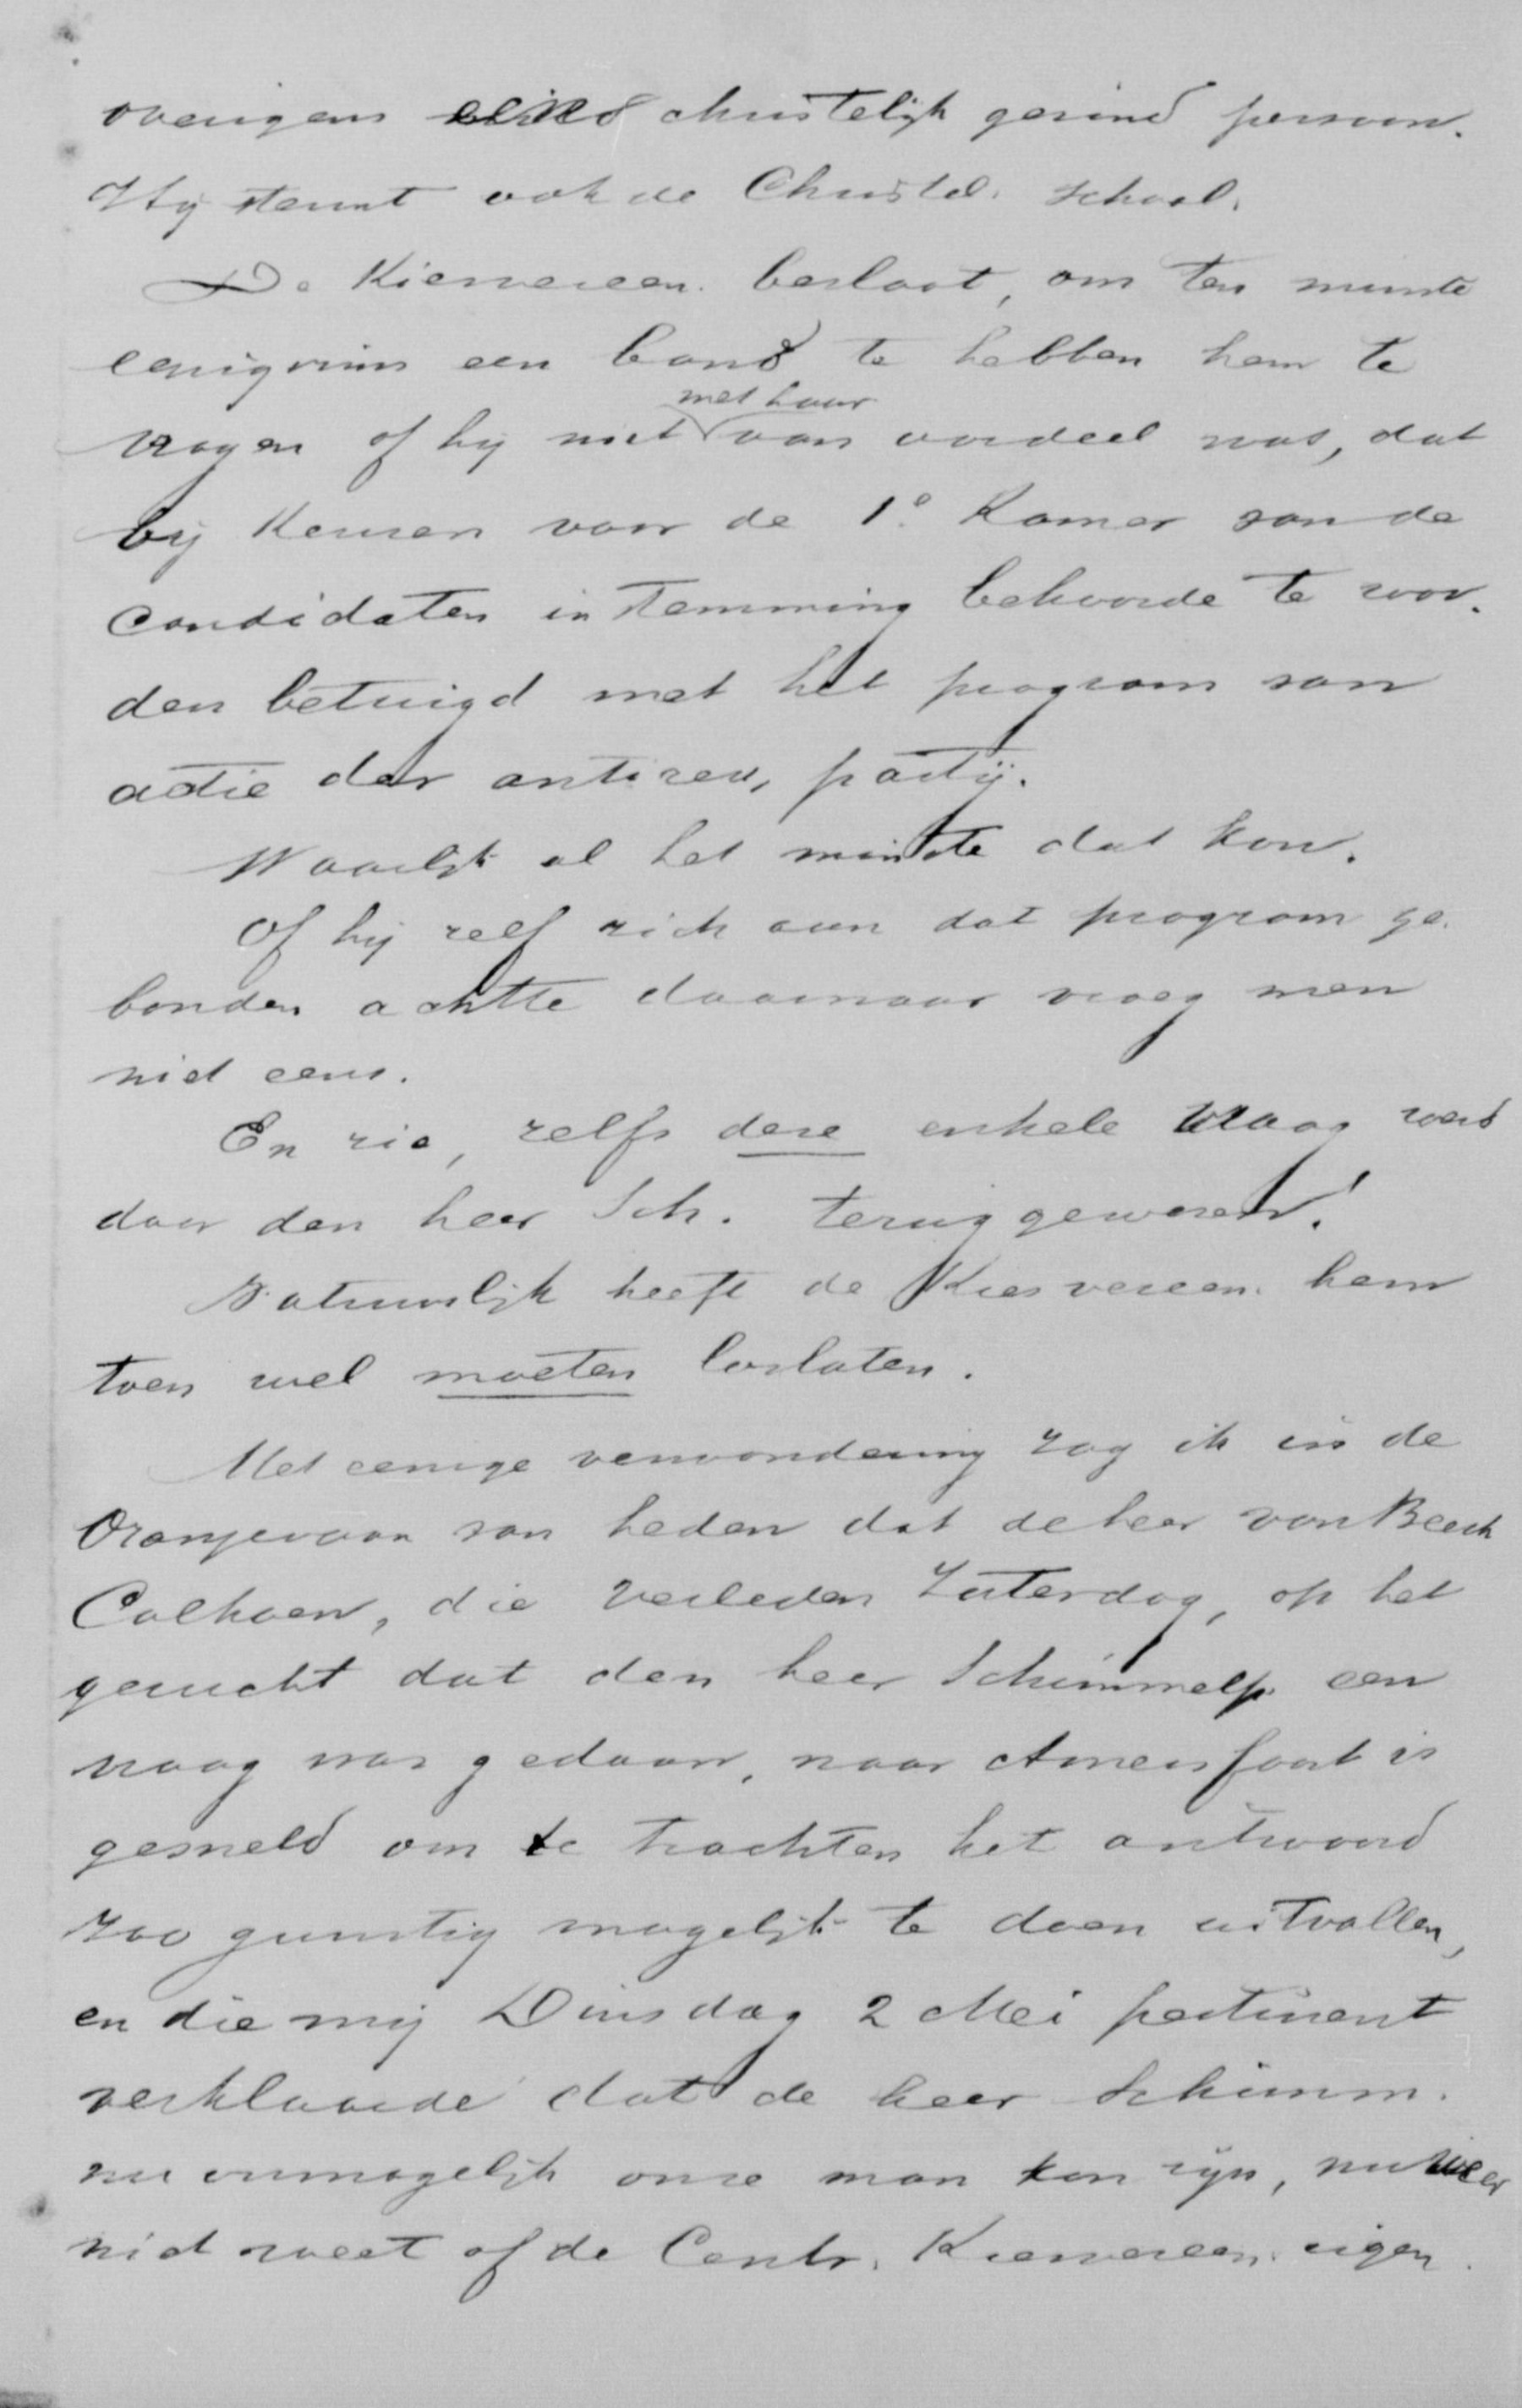 overigens christelijk gezind persoon.
Hij steunt ook de Christel. School.
De Kiesvereen. besloot, om ten minste
eenigzins een band te hebben hem te
vragen of hij niet met haar van oordeel was, dat
bij keuzen voor de 1e Kamer van de
candidaten instemming behoorde te wor-
den betuigd met het program van
actie der antirev. partij.
Waarlijk al het minste dat kon.
Of hij zelf zich aan dat program ge-
bonden achtte daarnaar vroeg men
niet eens.
En zie, zelfs deze enkele vraag werd
door den heer Sch. teruggewezen!
Natuurlijk heeft de Kiesvereen. hem
toen wel moeten loslaten.
Met eenige verwondering zag ik in de
Oranjevaan van heden dat de heer van Beeck
Calkoen, die verleden Zaterdag, op het
gerucht dat den heer Schimmelp. een
vraag was gedaan, naar Amersfoort is
gesneld om te trachten het antwoord
zoo gunstig mogelijk te doen uitvallen,
en die mij Dinsdag 2 Mei pertinent
verklaarde dat de heer Schimm.
nu onmogelijk onze man kon zijn, nu weer
niet weet of de Centr. Kiesvereen. eigen